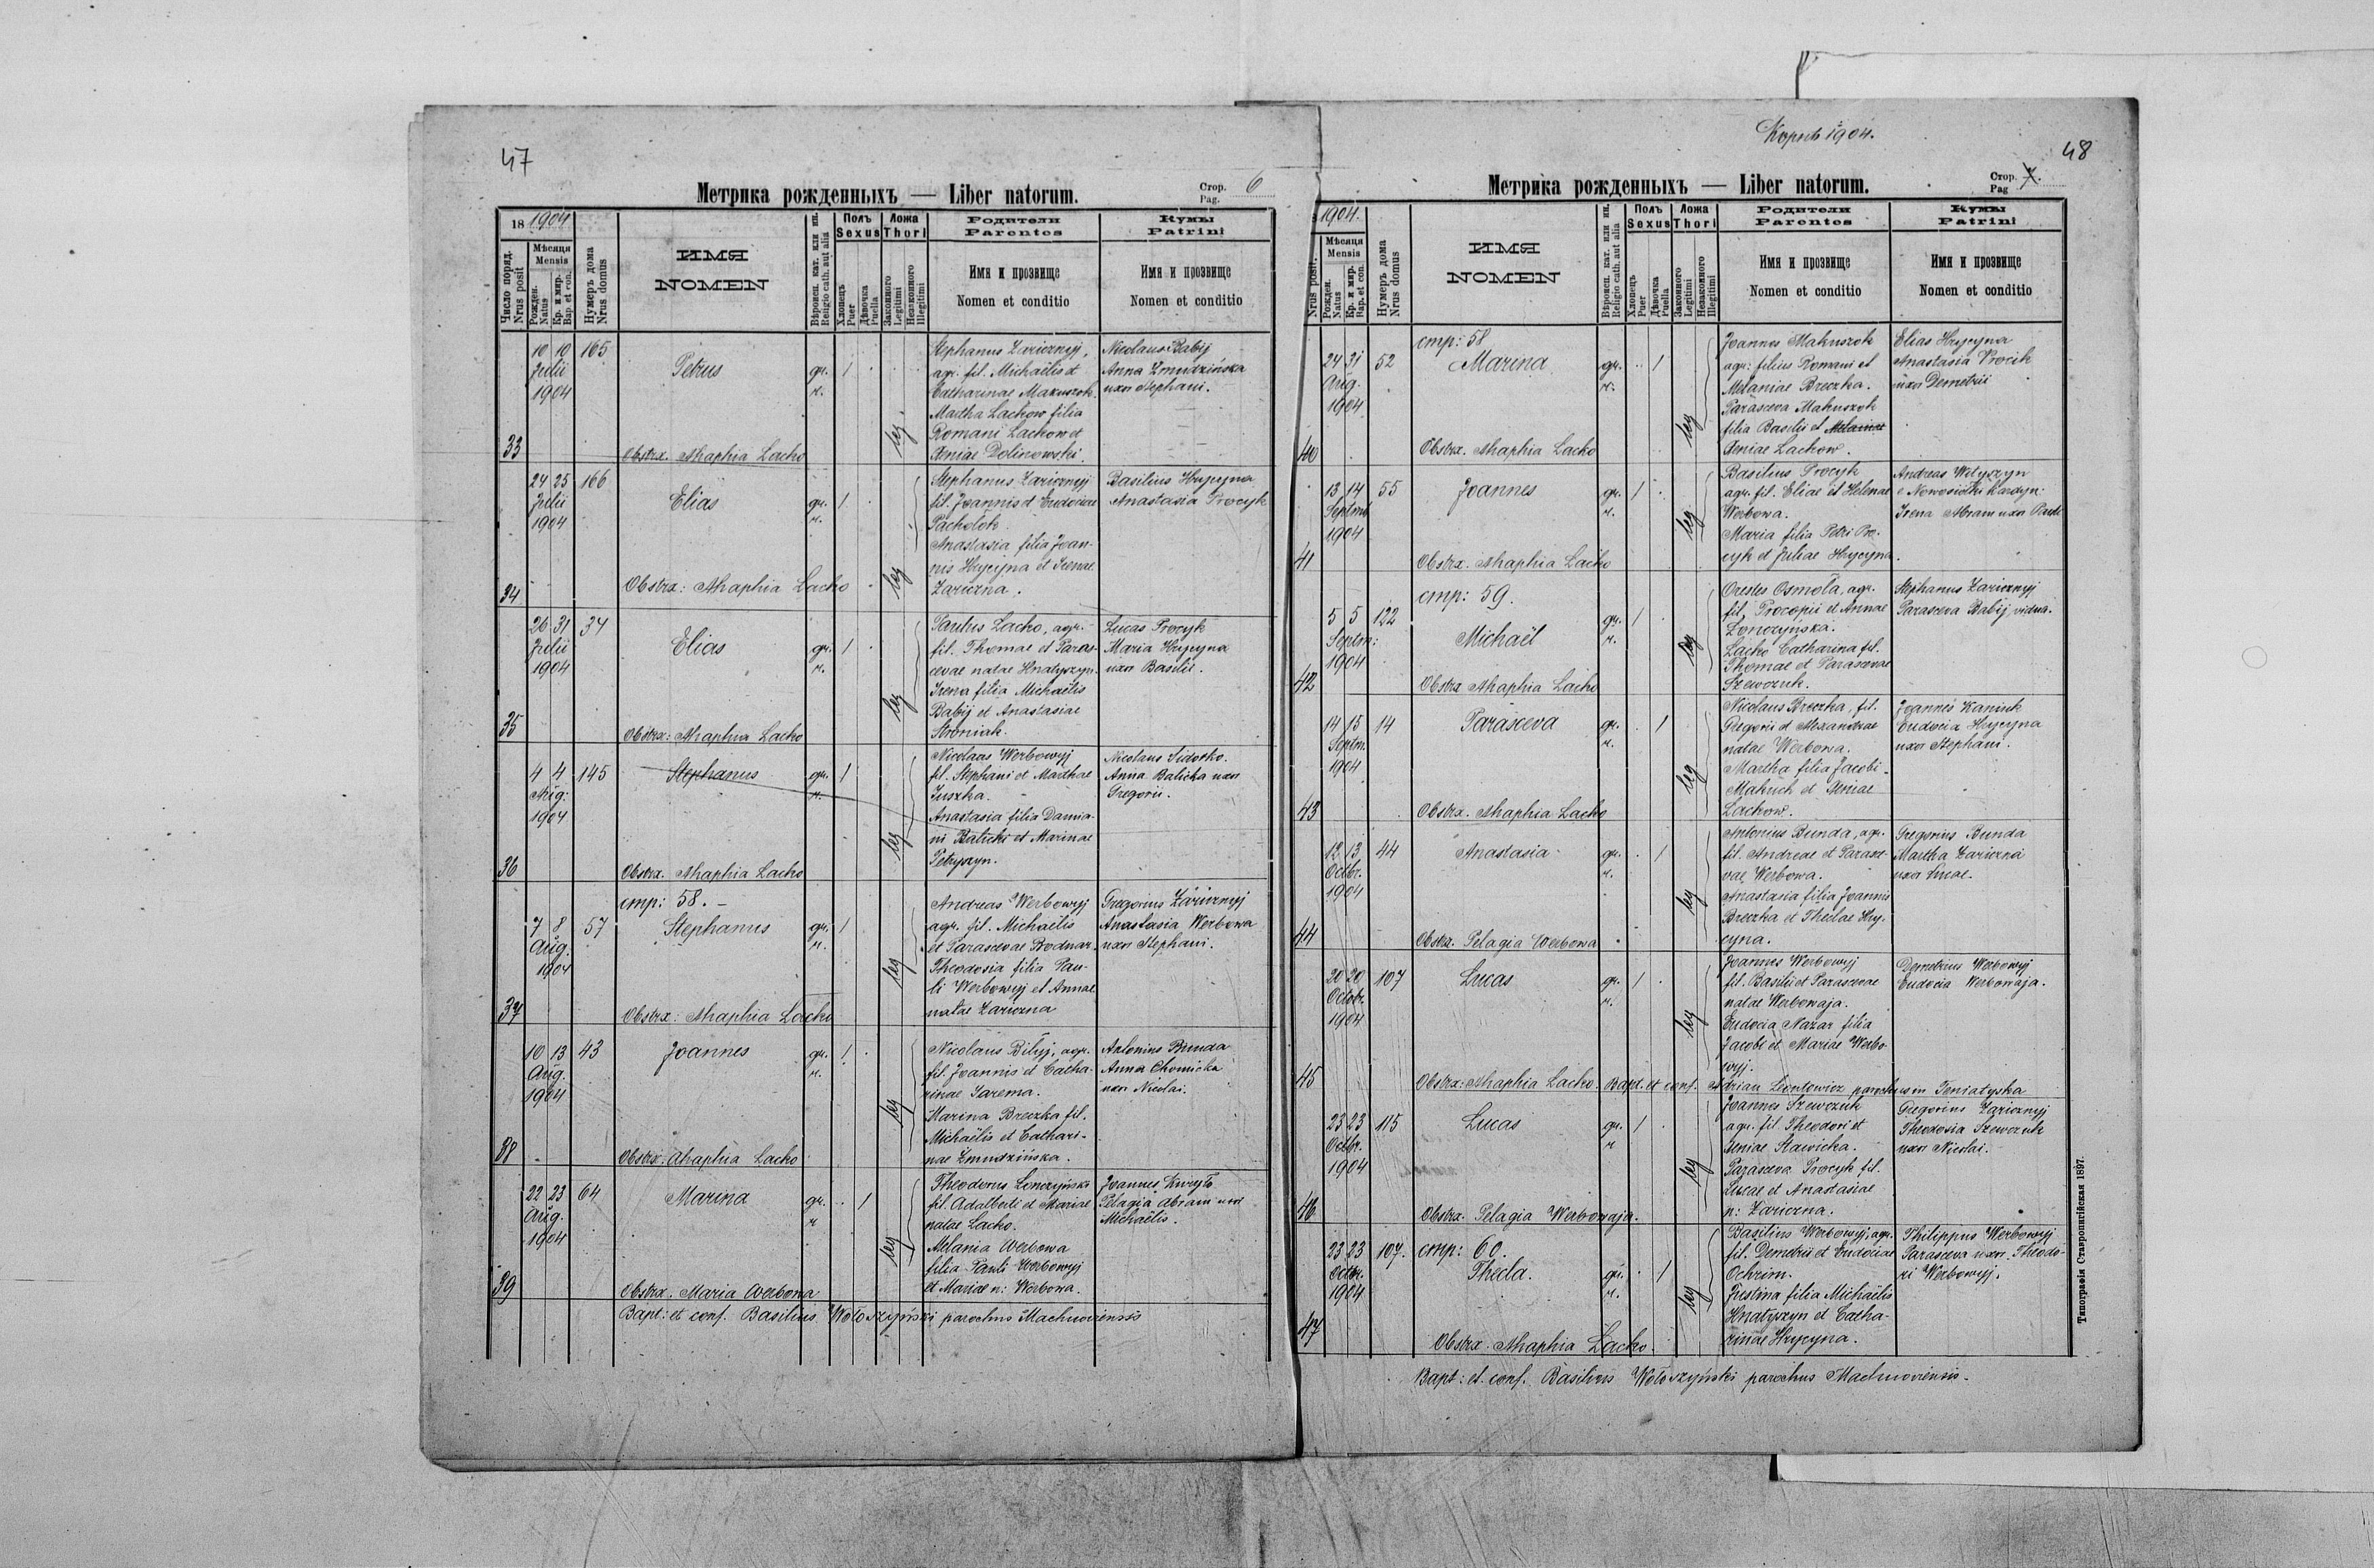 47
Метрика рожденныхъ — Liber natorum.
Стор. Pag. 6
18 1904
Число поряд. Nrus posit
Мѣсяця Mensis
Рожден. Natus
Кр. и мир. Bap. et con.
Нумеръ дома Nrus domus
ИМЯ
NOMEN
Вѣроисп. кат. или ин. Religio cath. aut alia
Полъ Sexus
Хлопецъ Puer
Дѣвочка Puella
Ложа Thori
Законного Legitimi
Незаконного Illegitimi
Родители Parentes
Имя и прозвище
Nomen et conditio
Кумы Patrini
Имя и прозвище
Nomen et conditio
33
10 10 Julii 1904
165
Petrus
gr. r.
1
leg
Stephanus Zaricznyj,
agr. fil. Michaëlis et
Catharinae Makuszok.
Martha Lachow filia
Romani Lachow et
Xeniae Dolinowski.
Nicolaus Babij
Anna Zmudzińska
uxor Stephani.
Obstrx. Ahaphia Lacho
34
24 25 Julii 1904
166
Elias
gr. r.
1
leg
Stephanus Zaricznyj
fil. Joannis et Eudociae
Pacholok.
Anastasia filia Joan-
nis Hrycyna et Irenae
Zariczna.
Basilius Hrycyna
Anastasia Procyk
Obstrx: Ahaphia Lacho
35
26 31 Julii 1904
34
Elias
gr. r.
1
leg
Paulus Lacho, agr.
fil. Thomae et Paras-
cevae natae Hnatyszyn.
Irena filia Michaëlis
Babij et Anastasiae
Stroniak.
Lucas Procyk
Maria Hrycyna
uxor Basilii.
Obstrx: Ahaphia Lacho
36
4 4 Aug: 1904
145
Stephanus
gr. r.
1
leg
Nicolaus Werbowyj
fil. Stephani et Marthae
Juszka.
Anastasia filia Damia-
ni Balicki et Marinae
Petryszyn.
Nicolaus Sidorko.
Anna Balicka uxor
Gregorii.
Obstrx. Ahaphia Lacho
37
cmp: 58. -
7 8 Aug. 1904
57
Stephanus
gr. r.
1
leg
Andreas Werbowyj
agr. fil. Michaëlis
et Parascevae Bodnar.
Theodosia filia Pau-
li Werbowyj et Annae
natae Zariczna
Gregorius Zaricznyj
Anastasia Werbowa
uxor Stephani.
Obstrx: Ahaphia Lacho
38
10 13 Aug. 1904
43
Joannes
gr. r.
1
leg
Nicolaus Bilyj, agr.
fil. Joannis et Catha-
rinae Jarema.
Marina Breczka fil.
Michaëlis et Cathari-
nae Zmudzińska.
Antonius Bunda
Anna Chomicka
uxor Nicolai.
Obstrx: Ahaphia Lacho
39
22 23 Aug. 1904
64
Marina
gr. r
1
leg
Theodorus Lonczyński
fil. Adalberti et Mariae
natae Lacho.
Melania Werbowa
filia Pauli Werbowyj
et Mariae n: Werbowa.
Joannes
Pelagia Abram uxor
Michaëlis.
Obstrx. Maria Werbowa
Bapt: et conf. Basilius Wołoszyński parochus Machnoviensis
1904.
48
Метрика рожденныхъ — Liber natorum.
Стор. Pag 7.
1904.
Nrus posit.
Мѣсяця Mensis
Рожден. Natus
Кр. и мир. Bap. et con.
Нумеръ дома Nrus domus
ИМЯ
NOMEN
Вѣроисп. кат. или ин. Religio cath. aut alia
Полъ Sexus
Хлопецъ Puer
Дѣвочка Puella
Ложа Thori
Законного Legitimi
Незаконного Illegitimi
Родители Parentes
Имя и прозвище
Nomen et conditio
Кумы Patrini
Имя и прозвище
Nomen et conditio
40
cmp: 58
24 31 Aug. 1904
52
Marina
gr. r.
1
leg
Joannes Makuszok
agr: filius Romani et
Melaniae Breczka.
Parasceva Makuszok
filia Basilii et Melaniae
Xeniae Lachow.
Elias Hrycyna
Anastasia Procik
uxor Demetrii
Obstrx. Ahaphia Lacho
41
13 14 Septemb. 1904
55
Joannes
gr. r.
1
leg
Basilius Procyk
agr. fil. Eliae et Helenae
Werbowa.
Maria filia Petri Pro-
cyk et Juliae Hrycyna.
Andreas Wityszyn
e Nowosiółki Kardyn:
Irena Abram uxor Pauli
Obstrx. Ahaphia Lacho
42
cmp: 59.
5 5 Septm: 1904
122
Michaël
gr. r.
1
leg
Orestes Osmoła, agr.
fil. Procopii et Annae
Lonczyńska.
Lacho Catharina fil.
Thomae et Parascevae
Szewczuk.
Stephanus Zaricznyj
Parasceva Babij, vidua.
Obstrx Ahaphia Lacho
43
14 15 Septm. 1904
14
Parasceva
gr. r.
1
leg
Nicolaus Breczka, fil.
Gregorii et Alexandrae
natae Werbowa.
Martha filia Jacobi
Makuch et Xeniae
Lachow.
Joannes Kaniuk
Eudocia Hrycyna
uxor Stephani.
Obstrx. Ahaphia Lacho
44
12 13 Octbr. 1904
44
Anastasia
gr. r.
1
leg
Antonius Bunda, agr.
fil. Andreae et Parasce-
vae Werbowa.
Anastasia filia Joannis
Breczka et Theclae Hry-
cyna.
Gregorius Bunda
Martha Zariczna
uxor Lucae.
Obstrx. Pelagia Werbowa
45
20 20 Octobr. 1904
107
Lucas
gr. r.
1
leg
Joannes Werbowyj
fil. Basilii et Parascevae
natae Werbowaja.
Eudocia Nazar filia
Jacobi et Mariae Werbo-
wyj.
Demetrius Werbowyj
Eudocia Werbowaja.
Obstrx: Ahaphia Lacho. Bapt. et conf. Adrian Leontowicz parochus in Teniatyska
46
23 23 Octbr. 1904
115
Lucas
gr. r
1
leg
Joannes Szewczuk
agr. fil. Theodori et
Xeniae Sławicka.
Parasceva Procyk fil.
Lucae et Anastasiae
n: Zariczna.
Gregorius Zaricznyj
Theodosia Szewczuk
uxor Nicolai.
Obstrx. Pelagia Werbowaja.
47
23 23 Octbr. 1904
107.
cmp: 60.
Thecla.
gr. r.
1
leg
Basilius Werbowyj, agr.
fil. Demetrii et Eudociae
Ochrim.
Justina filia Michaëlis
Hnatyszyn et Catha-
rinae Hrycyna.
Philippus Werbowyj
Parasceva uxor Theodo-
ri Werbowyj.
Obstrx. Ahaphia Lacho.
Bapt: et conf. Basilius Wołoszyński parochus Machnoviensis.
Типографія Ставропигійская 1897.